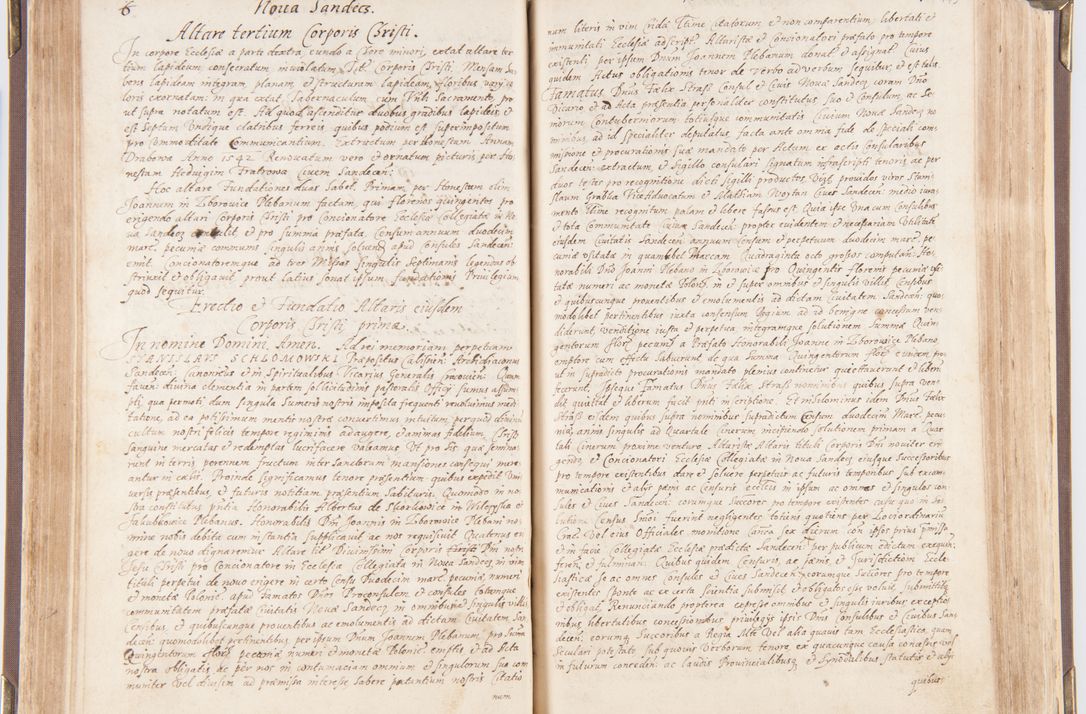 6 Noua Sandecz.
Altare tertium Corporis Christi.
In corpore Ecclesiæ a parte dextra eundo a Choro minori, extat altare ter
tium lapideum consecratum inviolatum Tit. Corporis Christi, Mensam ha
bens lapideam integram, planam, et structuram lapideam, floribus varij co
loris exornatam, in qua extat Tabernaculum cum Sacramento pro
ut supra notatum est. Ad quod ascenditur duobus gradibus lapideis, et
est septum undique clatribus ferreis, quibus podium est superimpositum
pro commoditate Communicantium. Extructum per honestam Annam
Drabowa Anno 1542 Renovatum vero et ornatum picturis per Ho
nestam Hedvigim Fratrowa Civem Sandecen:
Hoc altare Fundationes duas habet. Primam per Honestum olim
Joannum in Zborowice Plebanum factam, qui florenos quingentos pro
erigendo altari Corporis Christi pro Concionatore Ecclesiæ Collegiatæ in No
ua Sandecz et pro summa præfata Censum annuum duodecim
marc. pecuniæ communis singulis annis solvend. apud Consules Sandecen:
emit. Concionatoremque ad tres Missas singulis septimanis legendas ob
strinxit et obligavit, prout latius sonat ipsum fundationis Privilegium
quod sequitur.
Erectio et Fundatio Altaris eiusdem
Corporis Christi prima.
In nomine Domini. Amen. Ad rei memoriam perpetuam
STANISLAVS SCHLOMOWSKI Præpositus Calissien: Archidiaconus
Sandecen: Canonicus et in Spiritualibus Vicarius Generalis Cracovien: Quum
favente divina clementia in partem sollicitudinis pastoralis Officij sumus assum
pti, qua permoti dum singula humeris nostris imposita frequenti revolvimus medi
tatione, ad ea potissimum mentis nostræ convertimus intuitum, per quæ divinus
cultus nostri felicis tempore regiminis adaugere, et animas fidelium Christi
Sanguine mercatas et redemptas lucrifacere valeamus Ut pro his quæ semina
runt in terris perennem fructum inter Sanctorum mansiones consequi mere
antur in cælis. Proinde significamus tenore præsentium quibus expedit Uni
versis præsentibus, et futuris notitiam præsentium habituris. Quomodo in no
stra constitutus pntia Honorabilis Albertus de Skorkowice in Wilczyska et
Jakubkowice Plebanus. Honorabilis Dni Joannis in Zborowice Plebani no
mine nobis debita cum instantia supplicavit ac nos requisivit Quatenus eri
gere de novo dignaremur Altare tit. Divinissimi Corporis Dni nostri
Jesu Christi pro Concionatore in Ecclesia Collegiata in Noua Sandecz, in vim
tituli perpetui de novo erigere in certo Censu Duodecim marc. pecuniæ, numeri
et monetæ Polonic. apud Famatos Dnos Proconsulem et Consules totamque
communitatem præfatæ Civitatis Novæ Sandecz in omnibus et singulis villis
Censibus et quibuscunque proventibus ac emolumentis ad dictam Civitatem San
decen: quomodolibet pertinentibus, per ipsum Dnum Joannem Plebanum pro Summa
Quingentorum flor. pecuniæ numeri et monetæ Polonic. emptis et ad Acta
nostra obligatis ac per nos in contumaciam omnium et singulorum sua com
muniter vel divisim ad præmissa interesse habere putantium nostris Citatio
num
num literis in vim cridæ ltime citatorum et non comparentium, libertati et
immunitati Ecclesiæ adscript. Altaristæ et Concionatori præfato pro tempore
existenti per ipsum Dnum Joannem Plebanum donat. et assignat. Cuius
quidem Actus obligationis tenor de verbo ad verbum sequitur, et est talis.
Famatus Dnus Felix Straß Consul et Civis Nouæ Sandecz coram Dno
Vicario et ad Acta præsentia personaliter constitutus suo et Consulum, ac Se
niorum Contuberniorum totiusque communitatis Civium Nouæ Sandecz no
minibus, ad id specialiter deputatus, facta ante omnia fide de speciali com
missione et procurationis suæ mandato per Actum ex actis Consularibus
Sandecen: extractum, et sigillo consulari signatum infrascripti tenoris ac per
duos testes pro recognitione dicti sigilli productos, Vigt. providos viros Stani
slaum Grablia Viceadvocatum et Matthiam Woytan Cives Sandecen: medio iura
mento ltime recognitum palam et libere fassus est Quia ipse una cum Consulibus
et tota Communitate Civium Sandecen: propter evidentem et necessariam utilitatem
eiusdem Civitatis Sandecen: annuum Censum et perpetuum duodecim marc. pe
cuniæ usitatæ in quamlibet marcam Quadraginta octo grossos computan. Ho
norabili Dno Joanni Plebano in Zborowice pro Quingentis Florenis pecuniæ usi
tatæ numeri ac monetæ Polon. in et super omnibus et singulis villis, Censibus
et quibuscunque proventibus et emolumentis ad dictam Civitatem Sandecen: quo
modolibet pertinentibus iuxta consensum Regium ad id benigne concessum ven
diderunt, venditione iusta et perpetua integramque solutionem Summæ Quin
gentorum flor. pecuniæ a Præfato Honorabili Joanne in Zborowice Plebano
emptore cum effectu habuerunt de qua Summa Quingentorum flor. eundem pro
ut in supradicto procurationis mandato plenius continetur quietaverunt et liberum
fecerunt. Ipseque Famatus Dnus Fælix Straß nominibus quibus supra ven
dit quietat et liberum facit pnti inscriptione. Et nihilominus idem Dnus Fælix
Straß eisdem quibus supra nominibus supradictum Censum duodecim Marc. pecu
niæ, annis singulis ad Quartale Cinerum incipiendo solutionem primam a Quar
tali Cinerum proxime venturo, Altaristæ Altaris tituli Corporis Dni noviter eri
gendi, et Concionatori Ecclesiæ Collegiatæ in Noua Sandecz eiusque Successoribus
pro tempore existentibus dare et solvere perpetuis ac futuris temporibus sub excom
municationis et alijs pænis ac Censuris ecclcis in ipsum ac omnes et singulos con
sules et Cives Sandecen: eorumque Succores pro tempore existentes casu quo in so
lutione Census Smoi fuerint negligentes toties quoties per Loci ordinarium
Crac. Vel eius Officiales, monitione Canca sex dierum con ipsos prius pmissa
et in facie Collegiatæ Ecclesiæ prædictæ Sandecen: per publicum edictum exequen:
feren. et fulminan: Quibus quidem Censuris, ac pænis, et Jurisdictioni Eccle
siasticæ se ac omnes Consules et Cives Sandecen: eorumque Succores pro tempore
existentes sponte ac ex certa scientia submisit et obligatos esse voluit submittitque
et obligat, Renunciando propterea expresse omnibus et singulis iuribus, exceptio
nibus, libertatibus concessionibus privilegijs ipsis Dnis Consulibus et Civibus San
decen: eorumq Succoribus a Regia Mtte Vel alia quavis tam Ecclesiastica, quam
Seculari potestate sub quovis Verborum tenore, ex quacunque causa concessis vel
in futurum conceden: ac laudis Provincialibusq et Synodalibus, statutis et alijs
quibus